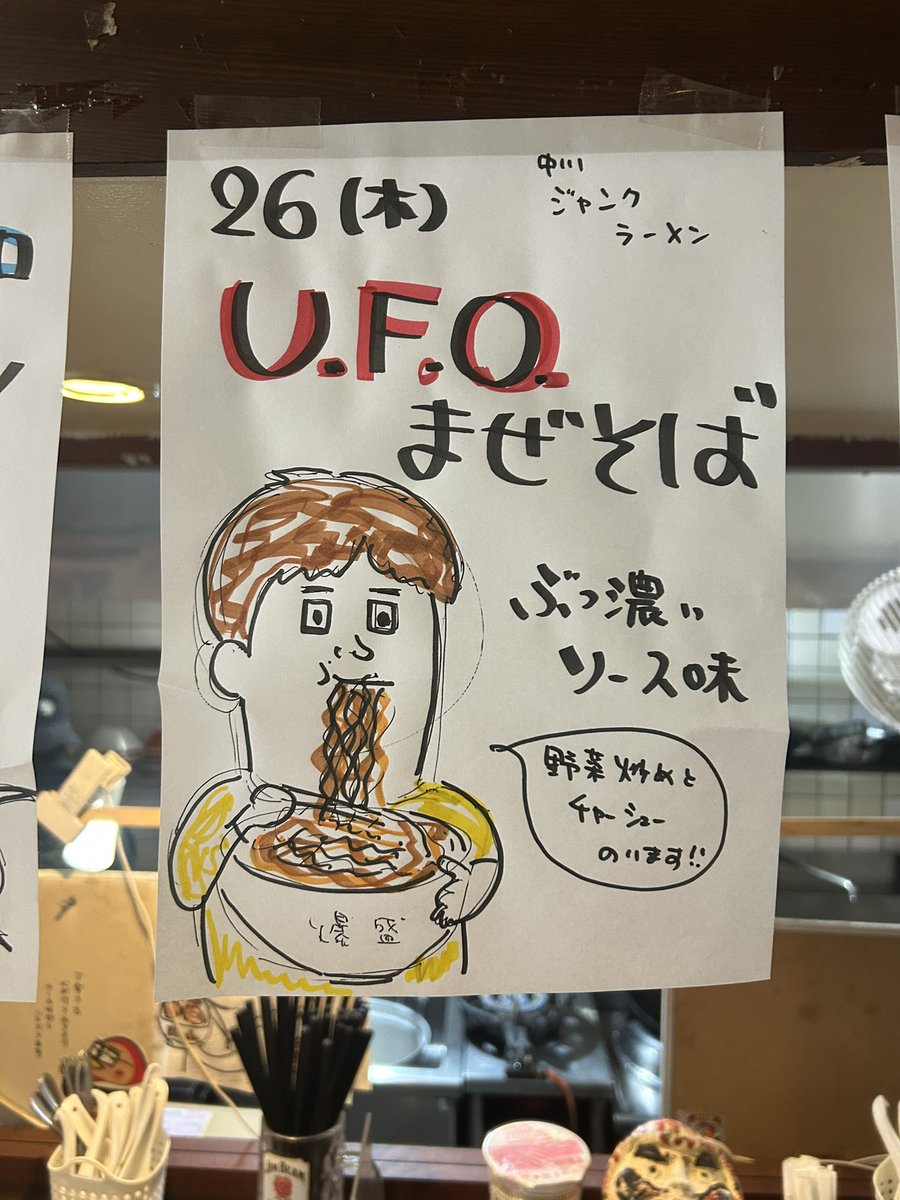 26(木)
中川
ジャンク
ラーメン
U.F.O.
まぜそば
ぶっ濃い
ソース味
野菜炒めと
チャーシュー
のります!!
爆盛
JIM BEAM